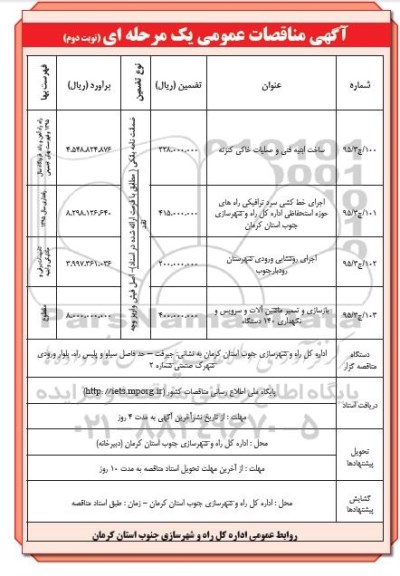 آگهی مناقصات عمومی یک مرحله ای (نوبت دوم)
شماره
عنوان
تضمین (ریال)
نوع تضمین
برآورد (ریال)
فهرست بها
۹۵/۳/ج/۱۰۰
ساخت ابنیه فنی و عملیات خاکی کنزئه
۲۲۸.۰۰۰.۰۰۰
۴.۵۴۸.۸۲۴.۸۷۶
۹۵/۳/ج/۱۰۱
اجرای خط کشی سرد ترافیکی راه های
حوزه استحفاظی اداره کل راه و شهرسازی
جنوب استان کرمان
۴۱۵.۰۰۰.۰۰۰
۸.۲۹۸.۱۲۶.۶۴۰
۹۵/۳/ج/۱۰۲
اجرای روشنایی ورودی شهرستان
رودبارجنوب
۲۰۰.۰۰۰.۰۰۰
۳.۹۹۷.۳۶۱.۰۳۶
۹۵/۳/ج/۱۰۳
بازسازی و تعمیر ماشین آلات و سرویس و
نگهداری ۱۴۰ دستگاه
۴۰۰.۰۰۰.۰۰۰
۸.۰۰۰.۰۰۰.۰۰۰
مقطوع
ضمانت نامه بانکی ( مطابق با فرمت ارائه شده در اسناد) - اصل فیش واریز وجه نقد
دستگاه
مناقصه گزار
اداره کل راه و شهرسازی جنوب استان کرمان به نشانی: جیرفت – حد فاصل سیلو و پلیس راه، بلوار ورودی
شهرک صنعتی شماره ۲
دریافت اسناد
پایگاه ملی اطلاع رسانی مناقصات کشور (http://iets.mporg.ir)
مهلت : از تاریخ نشرآخرین آگهی به مدت ۴ روز
تحویل
پیشنهادها
محل : اداره کل راه و شهرسازی جنوب استان کرمان (دبیرخانه)
مهلت : از آخرین مهلت تحویل اسناد مناقصه به مدت ۱۰ روز
گشایش
پیشنهادها
محل : اداره کل راه و شهرسازی جنوب استان کرمان – زمان : طبق اسناد مناقصه
روابط عمومی اداره کل راه و شهرسازی جنوب استان کرمان
ParsNamadData
پایگاه اطلاع رسانی مناقصه و مزایده
۰۲۱-۸۸۳۴۹۶۷۰-۵